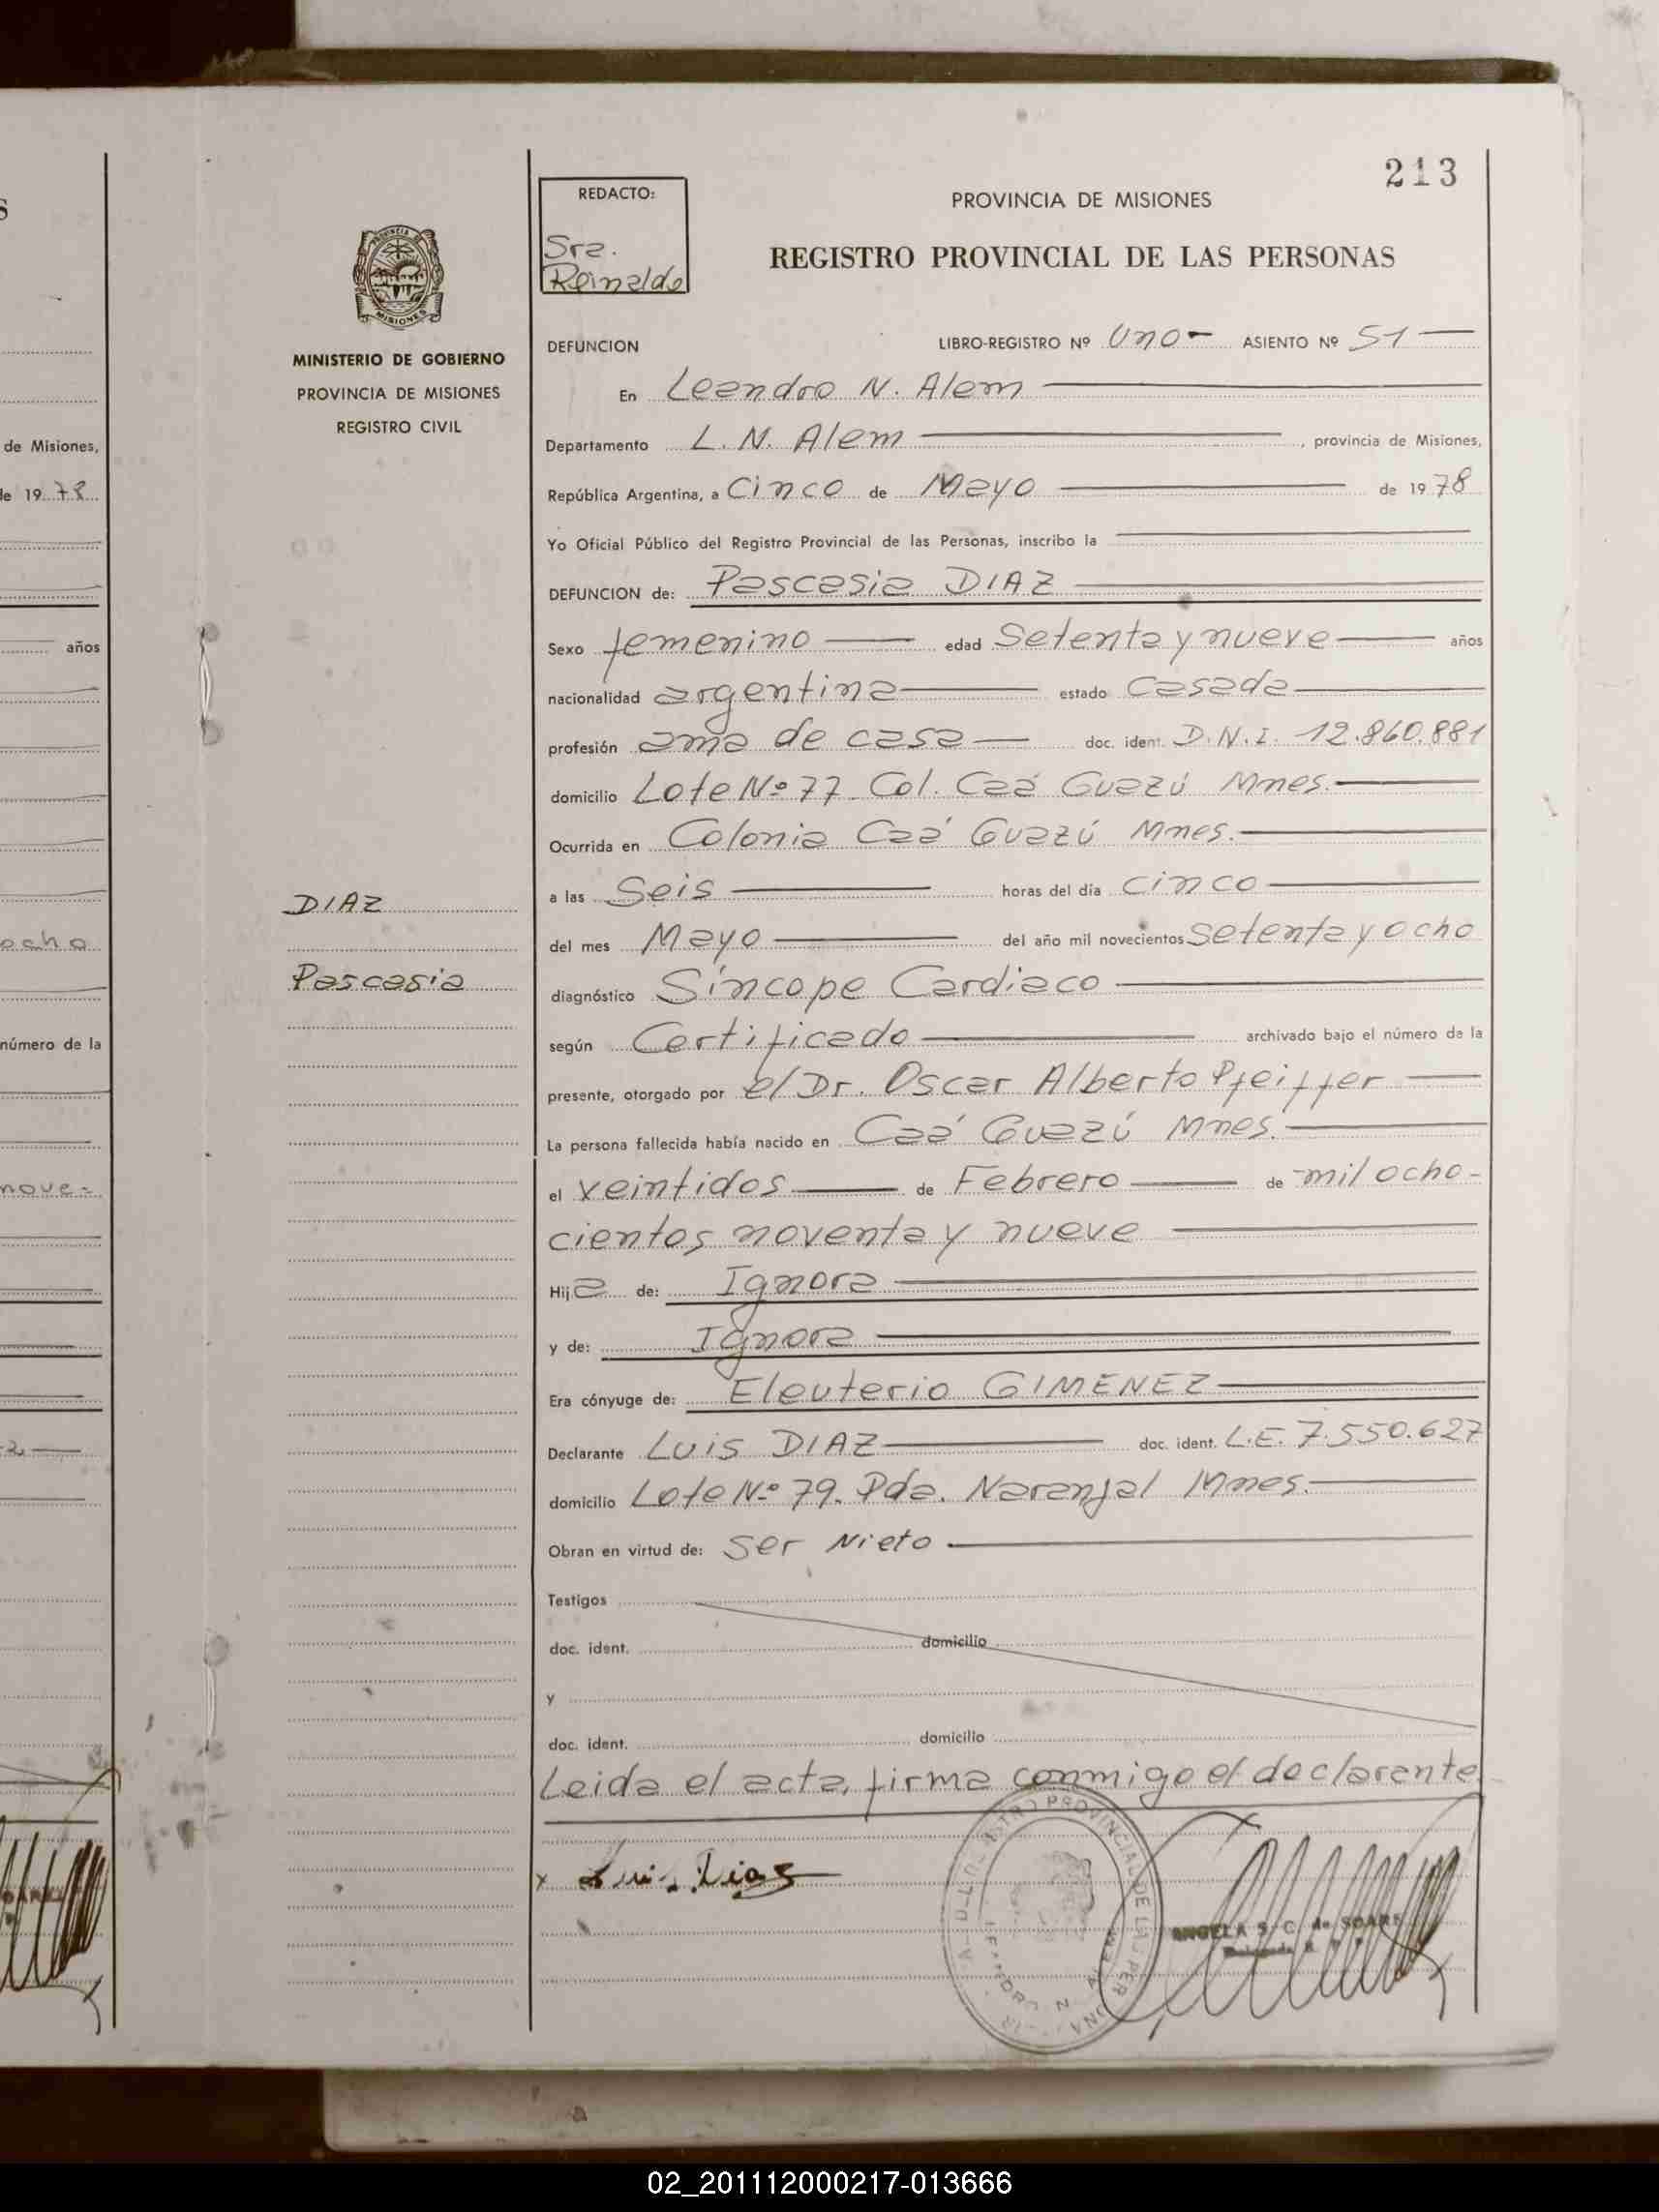 213
REDACTO:
Sra.
Reinaldo
PROVINCIA DE MISIONES
REGISTRO PROVINCIAL DE LAS PERSONAS
MISIONES
MINISTERIO DE GOBIERNO
PROVINCIA DE MISIONES
REGISTRO CIVIL
DIAZ
Pascasia
DEFUNCION LIBRO-REGISTRO Nº Uno- ASIENTO Nº 51
En Leandro N. Alem
Departamento L. N. Alem, provincia de Misiones,
República Argentina, a Cinco de Mayo de 1978
Yo Oficial Público del Registro Provincial de las Personas, inscribo la
DEFUNCION de: Pascasia DIAZ
Sexo femenino edad Setenta y nueve años
nacionalidad argentina estado Casada
profesión ama de casa doc. ident. D.N.I. 12.860.881
domicilio Lote Nº 77 Col. Caá Guazú Mnes.
Ocurrida en Colonia Caá Guazú Mnes.
a las Seis horas del día cinco
del mes Mayo del año mil novecientos Setenta y ocho
diagnóstico Síncope Cardiaco
según Certificado archivado bajo el número de la
presente, otorgado por el Dr. Oscar Alberto Pfeiffer
La persona fallecida había nacido en Caá Guazú Mnes.
el veintidos de Febrero de mil ocho-
cientos noventa y nueve
Hija de: Ignora
y de: Ignora
Era cónyuge de: Eleuterio GIMENEZ
Declarante Luis DIAZ doc. ident. L.E. 7.550.627
domicilio Lote Nº 79. Pda. Naranjal Mnes.
Obran en virtud de: Ser Nieto
Testigos
doc. ident. domicilio
y
doc. ident. domicilio
Leida el acta, firma conmigo el declarante
x Luis Dias
ANGELA S. C. de SOARE
de Misiones,
de 1978
años
ocho
número de la
nove-
02_201112000217-013666